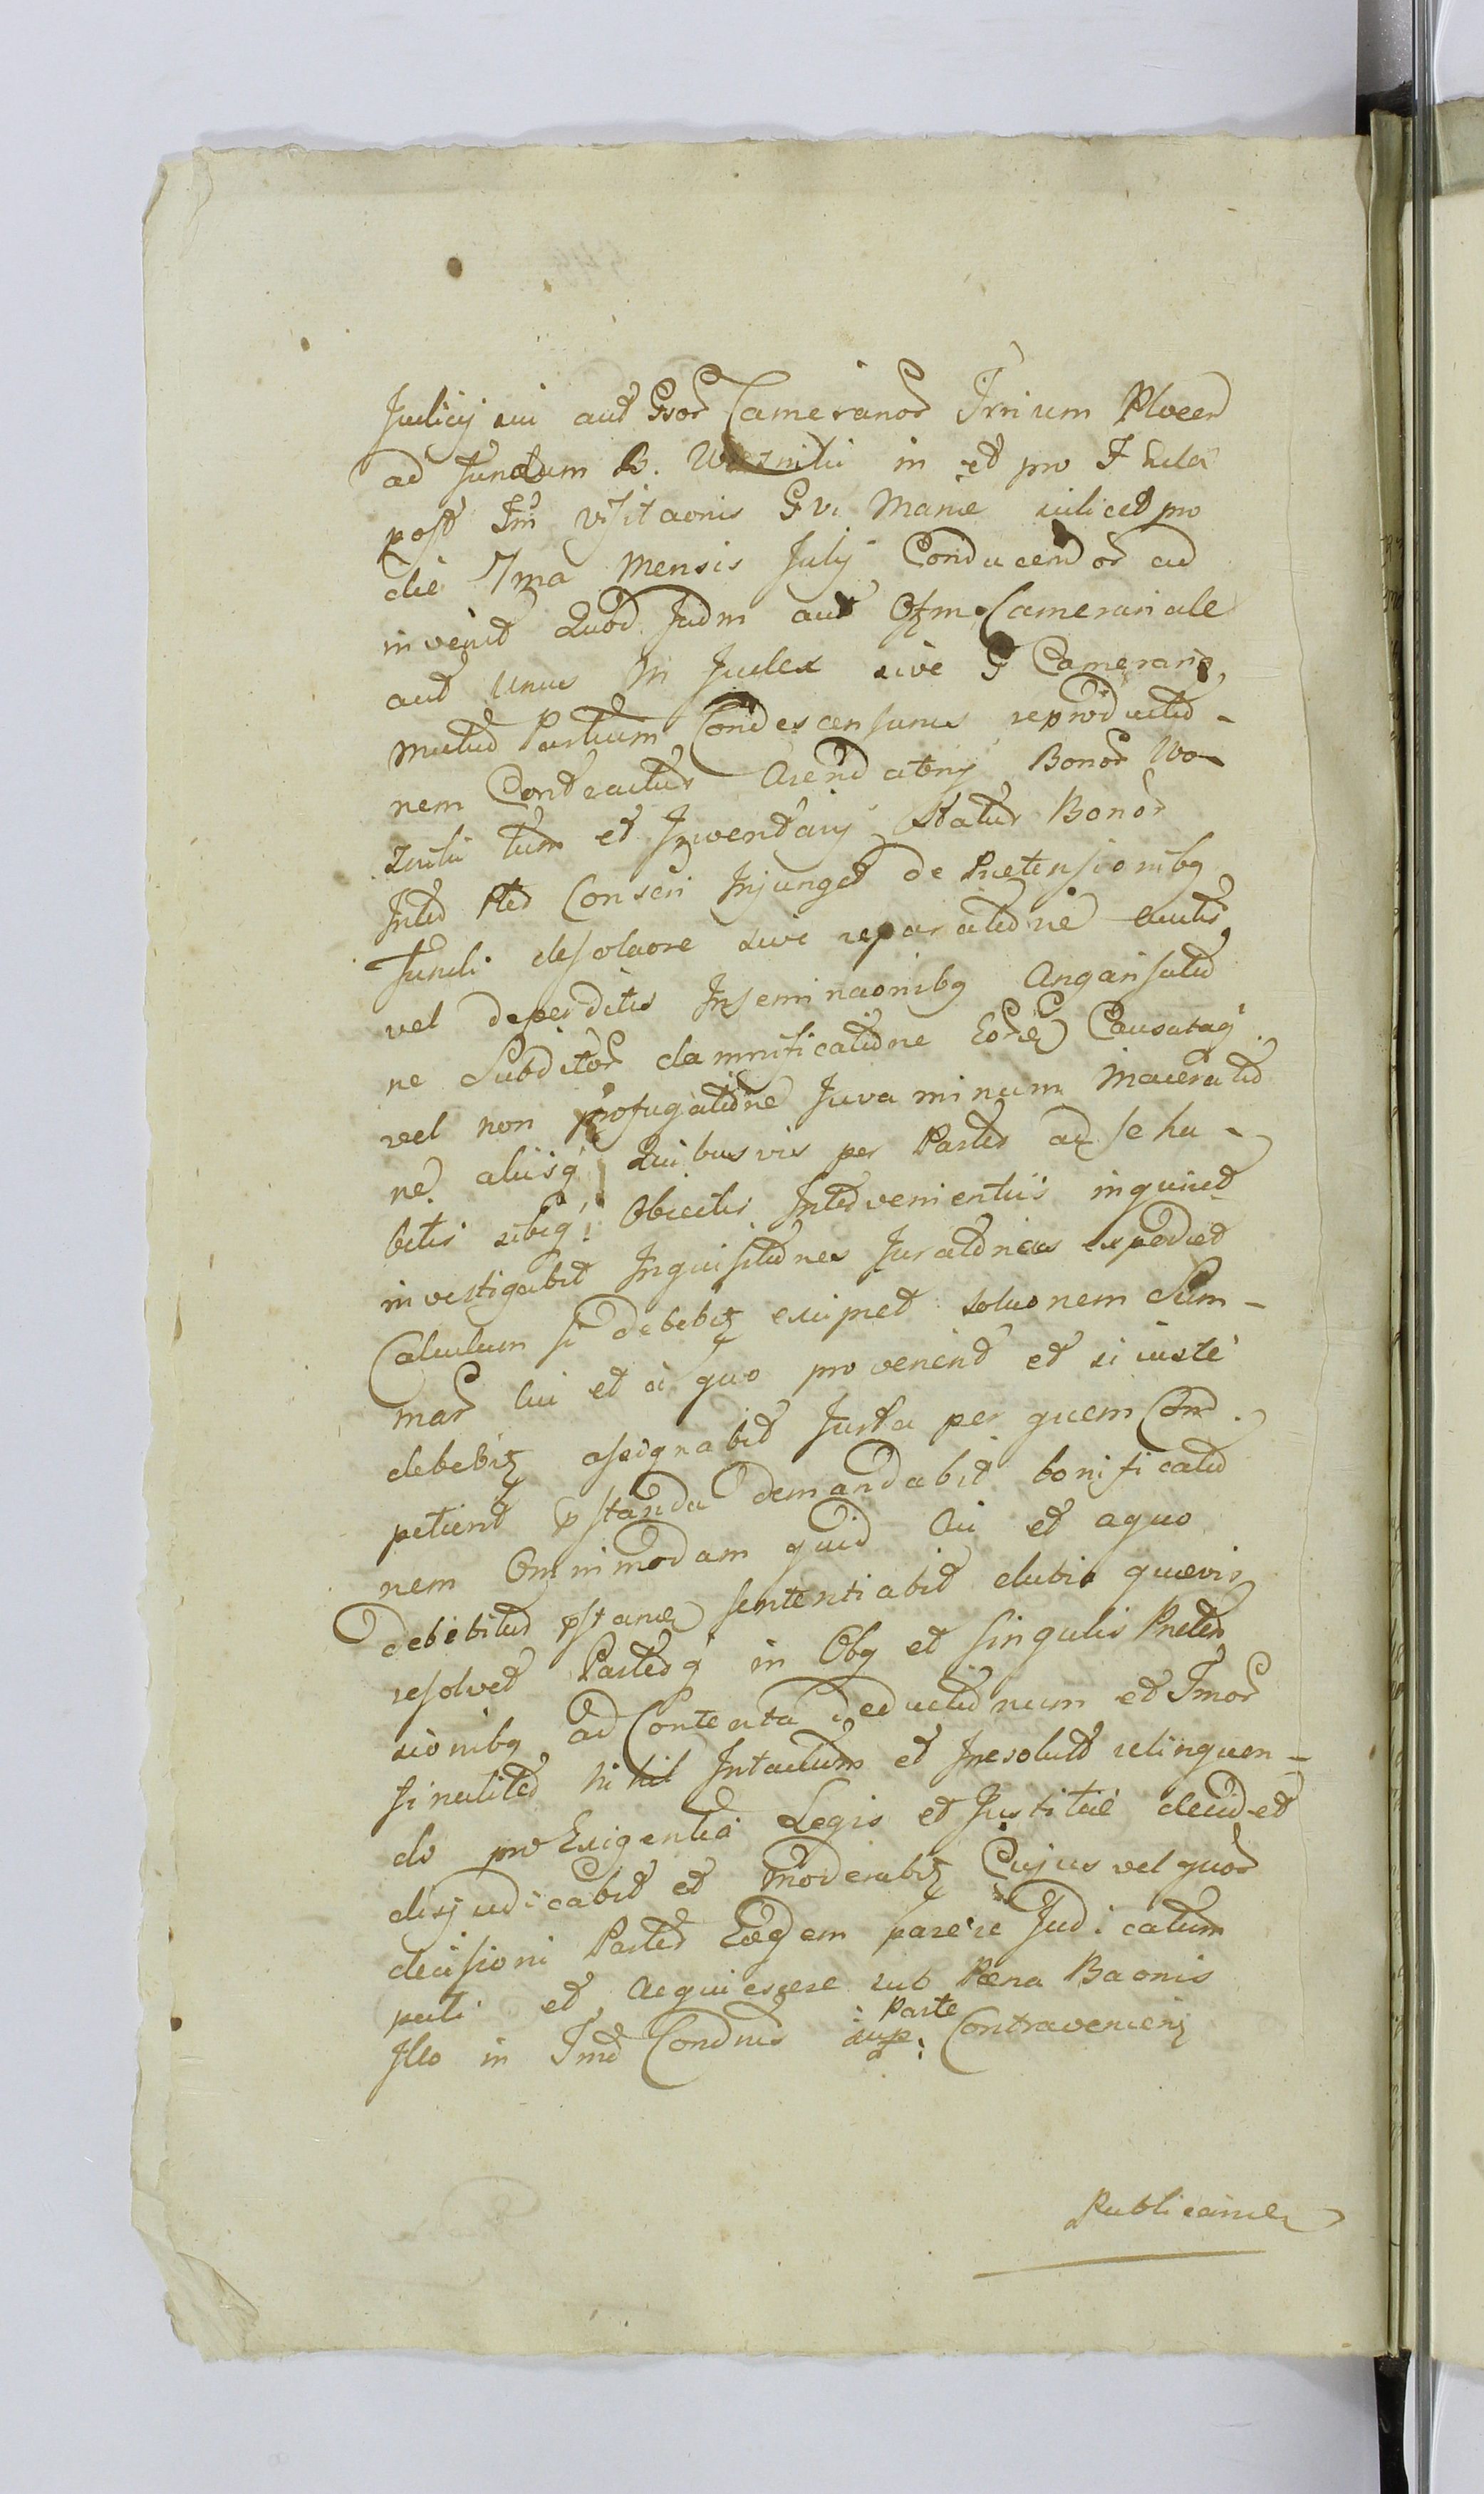 Judicij sui aut Gsor Cameranor Trium Plocen
ad fundum B. Woznilu in et pro F Zula
post Fm visitaonis G Vi Mariae scilicet pro
die 7ma Mensis Julij Conducendor ad
invenit Quod Judm aut Offm Camerariale
aut unus In Judex sive G Camerari9
mutuo Partium Condescensurus reproductio-
nem Contractus Arendatorij Bonor Wo-
znilu tum et Inventarij Status Bonor
Inter Ptes Conseri Injunget de Pretensionibq
fundi desolaore sive reparatione auctis
vel deperditis Inseminaonibq Angarisatio
ne Subditor damnificatione Eorq Causataq
vel non profugatione Juvaminum Maceratio
ne aliisq Quibusvis per Partes ad se ha-
bitis sibiq Obiectis Intervenientiis inquiret
investigabit Inquisitiones Juratorias expediet
Calculum si debebit excipiet soluonem Sum-
mar cui et a quo provenient et si juste
debebit assignabit Jurta per quem Com-
petient pstanda demandabit bonificatio
nem Omnimodam quid Cui et aquo
debebitur pstanq sententiabit dubia quaevis
resolvet Partesq in Obq et singulis Preten
sionibq ad Contenta deductionum et Tmor
finaliter nihil Intactum et Inresolut relinquen-
do pro Exigentia Legis et Justitiae decidet
disjudicabit et Moderabit Cujus vel quor
decisioni Partes Eaedem parere Judicatum
pati et Acquiescere sub Paena Baonis
Illo in Tmo Condnis sup: Parte Contravenienti
Publicanq